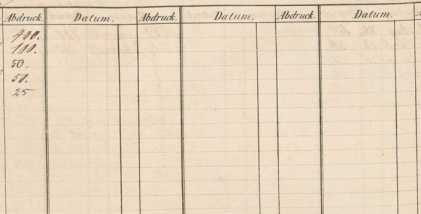 Abdruck. Datum. Abdruck. Datum. Abdruck. Datum.
100.
50.
50.
25